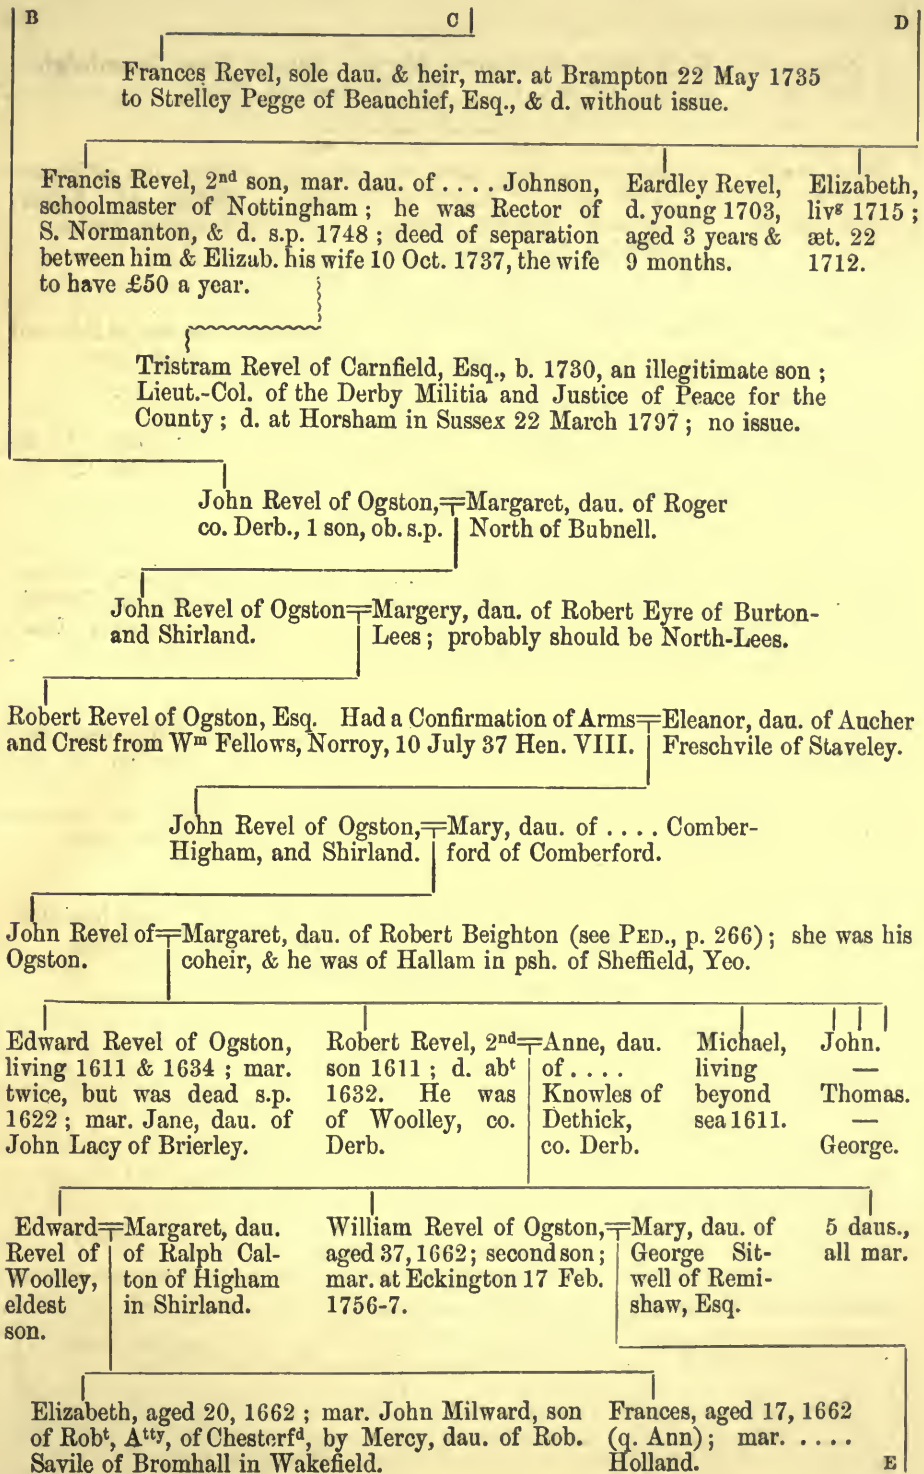 B C D
Frances Revel, sole dau. & heir, mar. at Brampton 22 May 1735
to Strelley Pegge of Beauchief, Esq., & d. without issue.
Francis Revel, 2nd son, mar. dau. of . . . . Johnson,
schoolmaster of Nottingham ; he was Rector of
S. Normanton, & d. s.p. 1748 ; deed of separation
between him & Elizab. his wife 10 Oct. 1737, the wife
to have £50 a year.
Eardley Revel,
d. young 1703,
aged 3 years &
9 months.
Elizabeth,
livg 1715 ;
æt. 22
1712.
Tristram Revel of Carnfield, Esq., b. 1730, an illegitimate son ;
Lieut.-Col. of the Derby Militia and Justice of Peace for the
County ; d. at Horsham in Sussex 22 March 1797 ; no issue.
John Revel of Ogston,
co. Derb., 1 son, ob. s.p.
Margaret, dau. of Roger
North of Bubnell.
John Revel of Ogston
and Shirland.
Margery, dau. of Robert Eyre of Burton-
Lees ; probably should be North-Lees.
Robert Revel of Ogston, Esq. Had a Confirmation of Arms
and Crest from Wm Fellows, Norroy, 10 July 37 Hen. VIII.
Eleanor, dau. of Aucher
Freschvile of Staveley.
John Revel of Ogston,
Higham, and Shirland.
Mary, dau. of . . . . Comber-
ford of Comberford.
John Revel of
Ogston.
Margaret, dau. of Robert Beighton (see PED., p. 266) ; she was his
coheir, & he was of Hallam in psh. of Sheffield, Yeo.
Edward Revel of Ogston,
living 1611 & 1634 ; mar.
twice, but was dead s.p.
1622 ; mar. Jane, dau. of
John Lacy of Brierley.
Robert Revel, 2nd
son 1611 ; d. abt
1632. He was
of Woolley, co.
Derb.
Anne, dau.
of . . . .
Knowles of
Dethick,
co. Derb.
Michael,
living
beyond
sea 1611.
John.
—
Thomas.
—
George.
Edward
Revel of
Woolley,
eldest
son.
Margaret, dau.
of Ralph Cal-
ton of Higham
in Shirland.
William Revel of Ogston,
aged 37, 1662 ; second son ;
mar. at Eckington 17 Feb.
1756-7.
Mary, dau. of
George Sit-
well of Remi-
shaw, Esq.
5 daus.,
all mar.
Elizabeth, aged 20, 1662 ; mar. John Milward, son
of Robt, Atty, of Chesterfd, by Mercy, dau. of Rob.
Savile of Bromhall in Wakefield.
Frances, aged 17, 1662
(q. Ann) ; mar. . . . .
Holland.
E